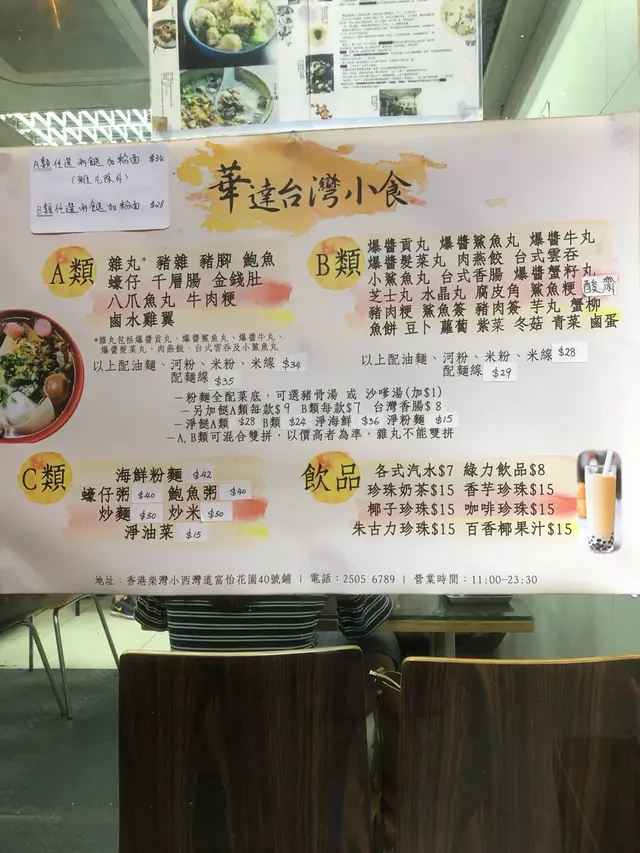 A類任選兩餸加粉面 $34
(雜丸除外)
B類任選兩餸加粉面 $28
華達台灣小食
A類
雜丸* 豬雜 豬腳 鮑魚
蠔仔 千層腸 金錢肚
八爪魚丸 牛肉粳
鹵水雞翼
*雜丸包括爆醬貢丸、爆醬鯊魚丸、爆醬牛丸、
爆醬髮菜丸、肉燕餃、台式雲吞及小鯊魚丸
以上配油麵、河粉、米粉、米線 $34
配麵線 $35
B類
爆醬貢丸 爆醬鯊魚丸 爆醬牛丸
爆醬髮菜丸 肉燕餃 台式雲吞
小鯊魚丸 台式香腸 爆醬蟹籽丸
芝士丸 水晶丸 腐皮角 鯊魚粳 酸齋
豬肉粳 鯊魚簽 豬肉簽 芋丸 蟹柳
魚餅 豆卜 蘿蔔 紫菜 冬菇 青菜 鹵蛋
以上配油麵、河粉、米粉、米線 $28
配麵線 $29
–粉麵全配菜底，可選豬骨湯 或 沙嗲湯(加$1)
–另加餸A類每款$9 B類每款$7 台灣香腸$8
–淨餸A類 $28 B類 $24 淨海鮮 $36 淨粉麵 $15
–A,B類可混合雙拼，以價高者為準，雜丸不能雙拼
C類
海鮮粉麵 $42
蠔仔粥 $40 鮑魚粥 $40
炒麵 $50 炒米 $50
淨油菜 $15
飲品
各式汽水$7 綠力飲品$8
珍珠奶茶$15 香芋珍珠$15
椰子珍珠$15 咖啡珍珠$15
朱古力珍珠$15 百香椰果汁$15
地址：香港柴灣小西灣道富怡花園40號鋪 | 電話：2505 6789 | 營業時間：11:00-23:30